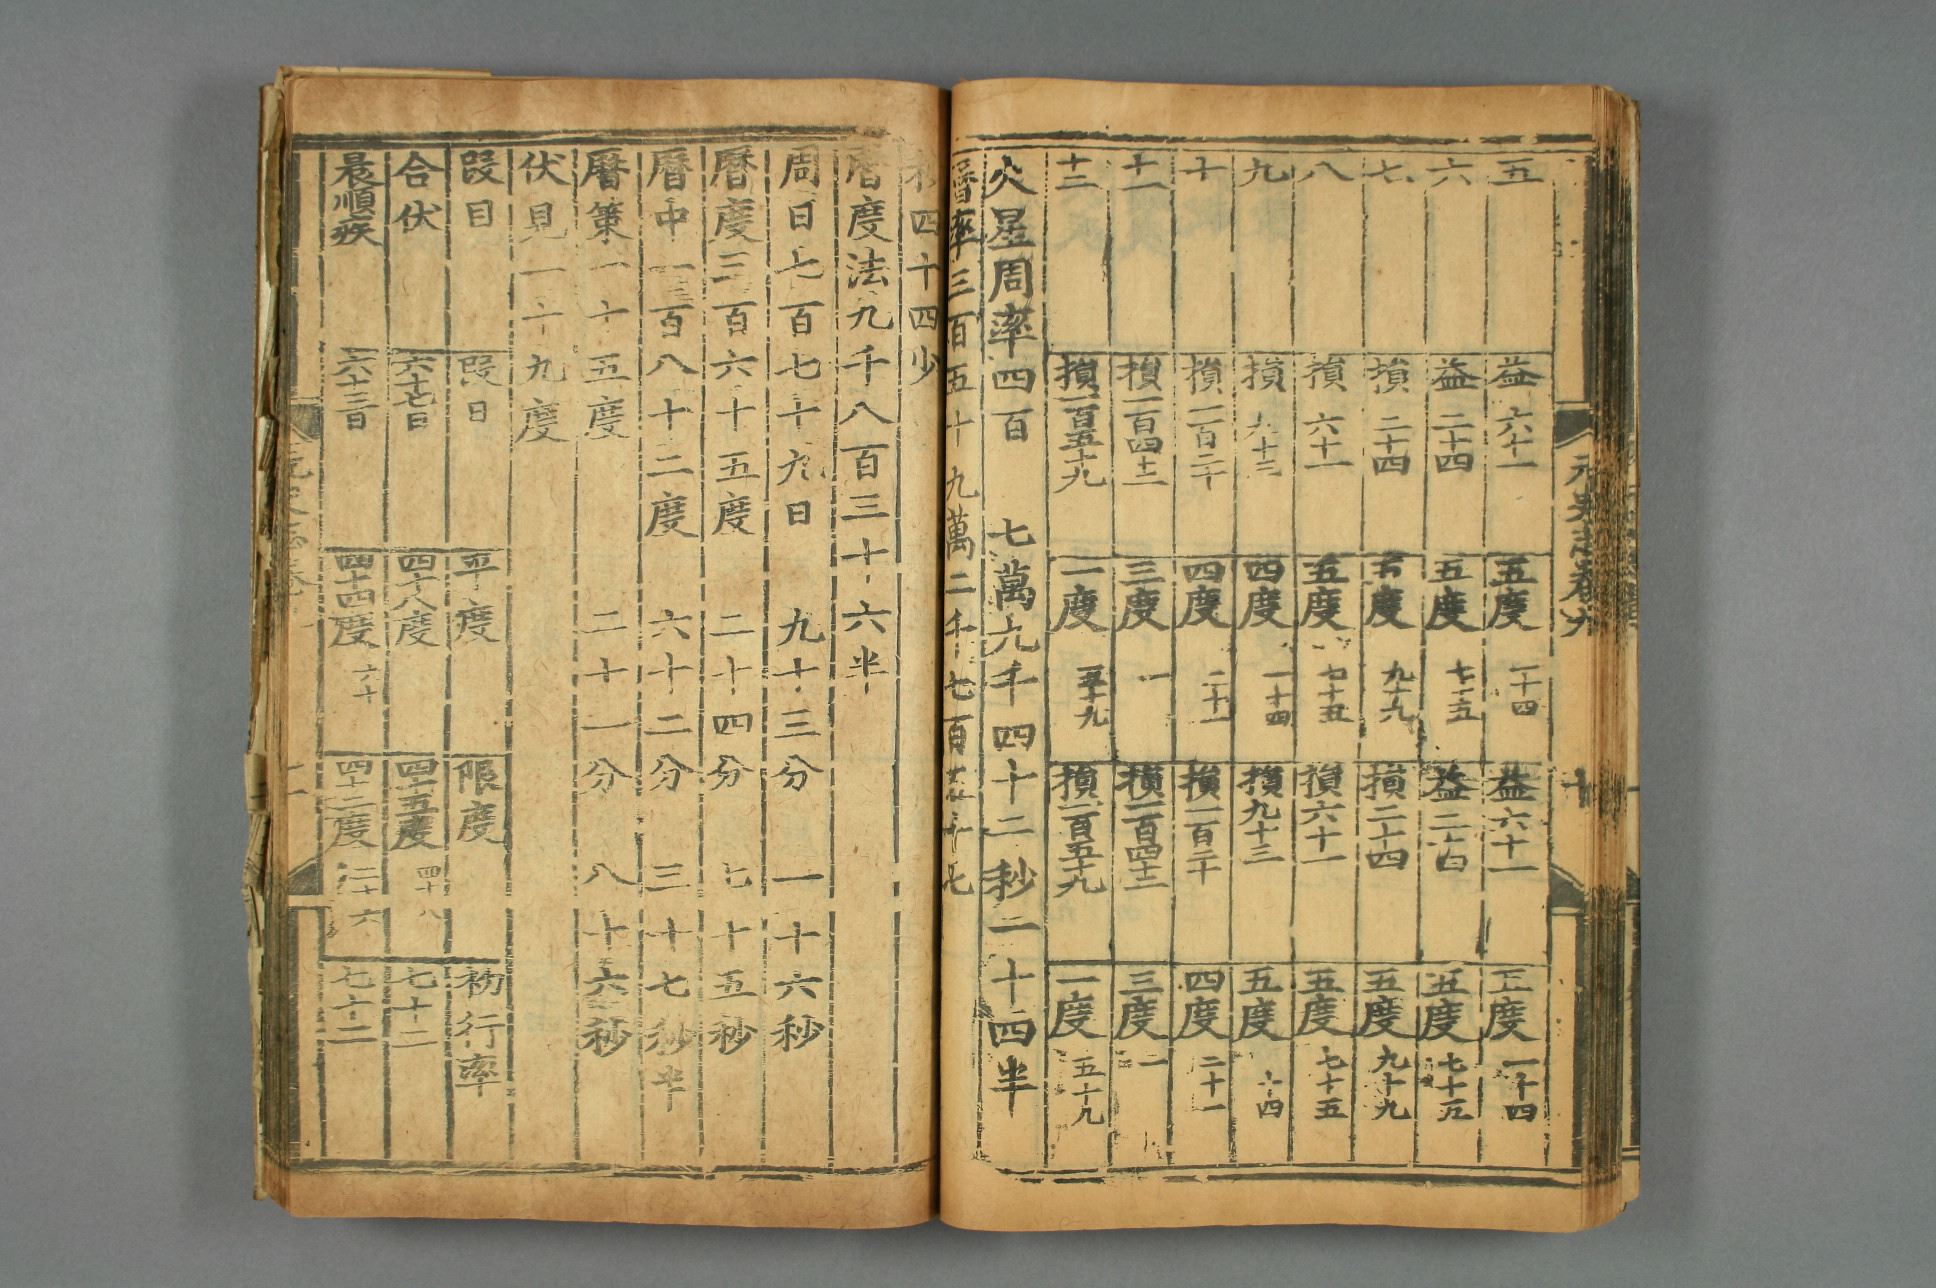 元史志卷九 十
五 益六十一 五度一十四 益六十一 五度一十四
六 益二十四 五度七十五 益二十四 五度七十五
七 損二十四 五度九十九 損二十四 五度九十九
八 損六十一 五度七十五 損六十一 五度七十五
九 損九十三 四度一十四 損九十三 五度一十四
十 損一百二十 四度二十一 損一百二十 四度二十一
十一 損一百四十二 三度一 損一百四十二 三度一
十二 損一百五十九 一度五十九 損一百五十九 一度五十九
火星周率四百 七萬九千四十二秒二十四半
曆率三百五十九萬二千七百五十七
秒四十四少
曆度法九千八百三十六半
周日七百七十九日 九十三分 一十六秒
曆度三百六十五度 二十四分 七十五秒
曆中一百八十二度 六十二分 三十七秒半
曆策一十五度 二十一分 八十六秒
伏見一十九度
段目 段日 平度 限度 初行率
合伏 六十七日 四十八度 四十五度四十八 七十二
晨順疾 六十三日 四十四度六十 四十二度二十六 七十二